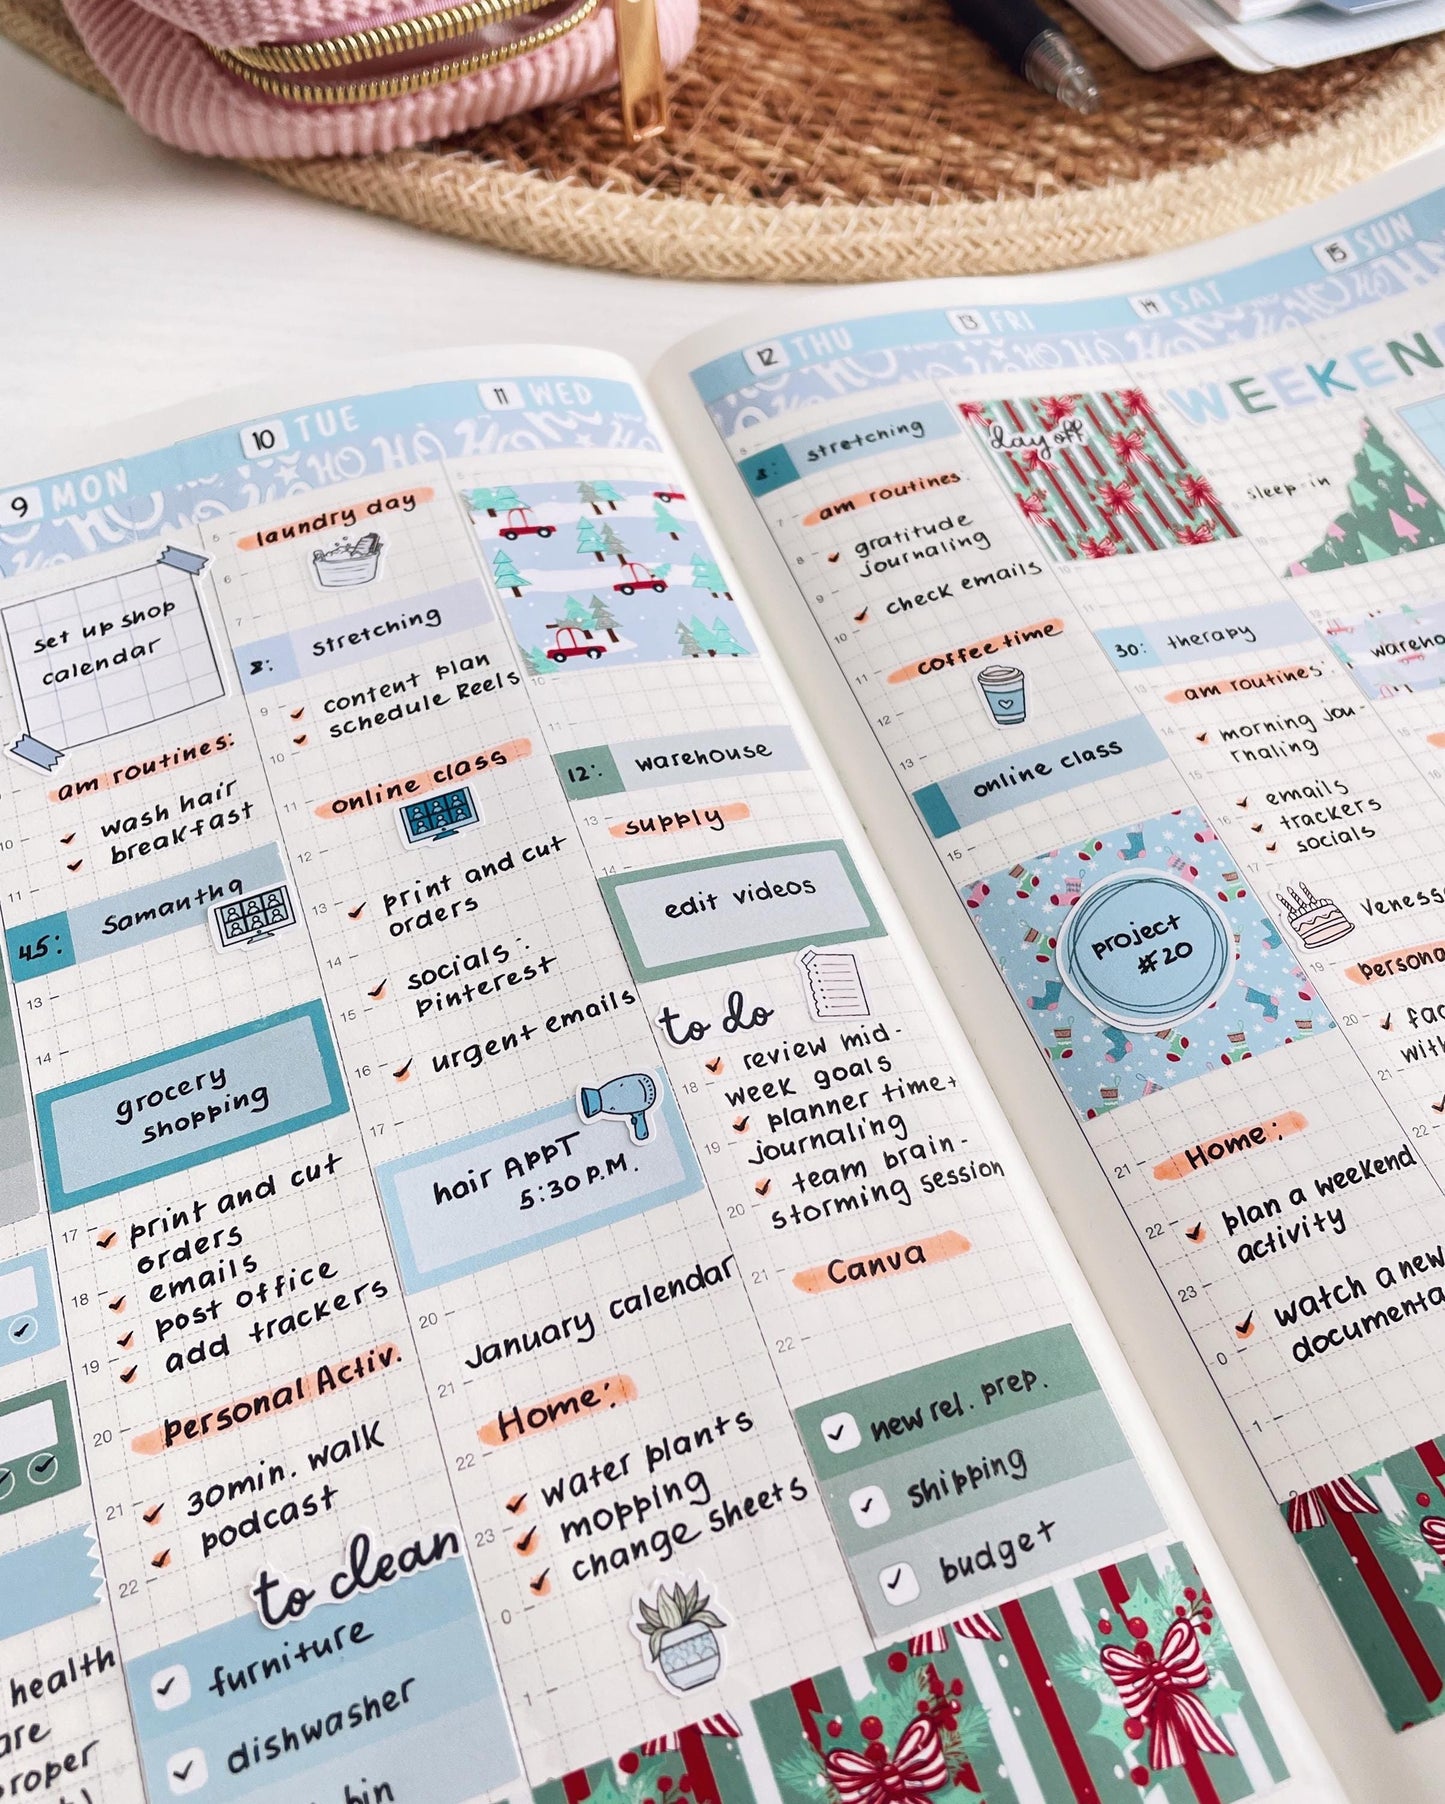 9 MON
set up shop
calendar
am routines:
wash hair
breakfast
45:
Samantha
grocery
shopping
print and cut
orders
emails
post office
add trackers
Personal Activ.
30min. walk
podcast
to clean
furniture
dishwasher
bin
health
10 TUE
laundry day
8:
stretching
content plan
schedule Reels
online class
print and cut
orders
socials:
pinterest
urgent emails
hair APPT
5:30 P.M.
January calendar
Home:
water plants
mopping
change sheets
11 WED
12:
warehouse
supply
edit videos
to do
review mid-
week goals
planner time +
journaling
team brain-
storming session
Canva
new rel. prep.
shipping
budget
12 THU
8:
stretching
am routines:
gratitude
journaling
check emails
coffee time
online class
project
#20
Home:
plan a weekend
activity
watch a new
13 FRI
day off
30:
therapy
am routines:
morning jou-
rnaling
emails
trackers
socials
14 SAT
15 SUN
sleep-in